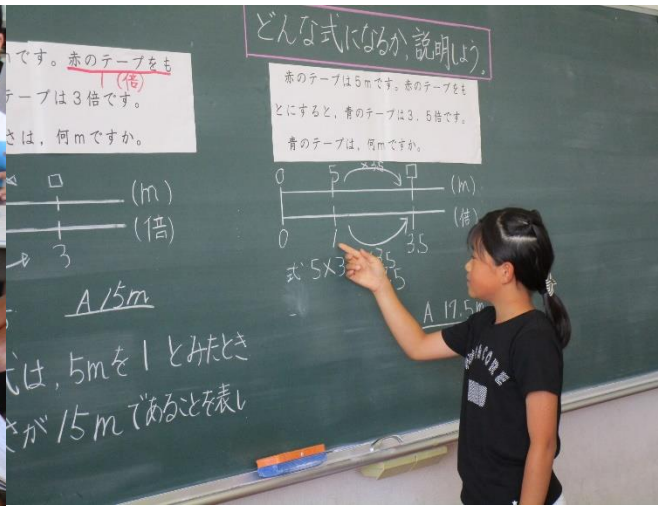 どんな式になるか,説明しよう。
です。赤のテープをも
1 (倍)
テープは3倍です。
さは,何mですか。
□
(m)
(倍)
3
A 15m
は,5mを1とみたとき
が15mであることを表し
赤のテープは5mです。赤のテープをも
とにすると,青のテープは3.5倍です。
青のテープは,何mですか。
0 5 □
(m)
(倍)
0 1 3.5
式 5×3
A 17.5m